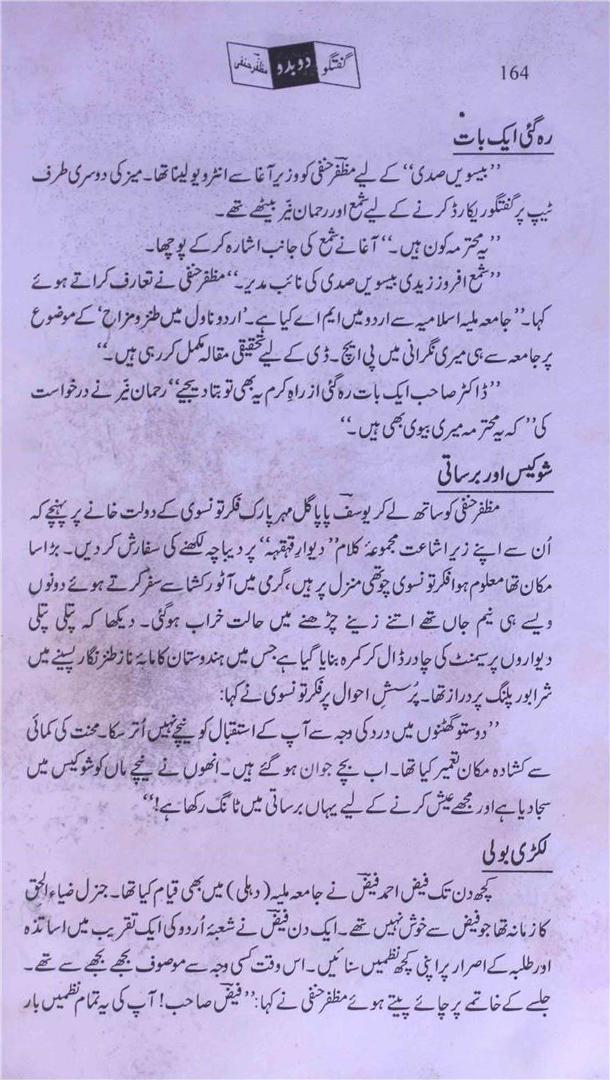 گفتگو دوبدو مظفر حنفی
164
رہ گئی ایک بات
”بیسویں صدی“ کے لیے مظفرؔ حنفی کو وزیر آغا سے انٹرویو لینا تھا۔ میز کی دوسری طرف
ٹیپ پر گفتگو ریکارڈ کرنے کے لیے شمع اور رحمان نیّر بیٹھے تھے۔
”یہ محترمہ کون ہیں۔“ آغا نے شمع کی جانب اشارہ کر کے پوچھا۔
”شمع افروز زیدی بیسویں صدی کی نائب مدیر۔“ مظفر حنفی نے تعارف کراتے ہوئے
کہا۔ ”جامعہ ملیہ اسلامیہ سے اردو میں ایم اے کیا ہے۔ ’اردو ناول میں طنز و مزاح‘ کے موضوع
پر جامعہ سے ہی میری نگرانی میں پی ایچ۔ ڈی کے لیے تحقیقی مقالہ مکمل کر رہی ہیں۔“
”ڈاکٹر صاحب ایک بات رہ گئی از راہِ کرم یہ بھی تو بتا دیجیے“ رحمان نیّر نے درخواست
کی ”کہ یہ محترمہ میری بیوی بھی ہیں۔“
شوکیس اور برساتی
مظفر حنفی کو ساتھ لے کر یوسفؔ پاپا گل مہر پارک فکر تونسوی کے دولت خانے پر پہنچے کہ
اُن سے اپنے زیرِ اشاعت مجموعۂ کلام ”دیوارِ قہقہہ“ پر دیباچہ لکھنے کی سفارش کر دیں۔ بڑا سا
مکان تھا معلوم ہوا فکر تونسوی چوتھی منزل پر ہیں، گرمی میں آٹو رکشا سے سفر کرتے ہوئے دونوں
ویسے ہی نیم جاں تھے اتنے زینے چڑھنے میں حالت خراب ہو گئی۔ دیکھا کہ پتلی پتلی
دیواروں پر سیمنٹ کی چادر ڈال کر کمرہ بنایا گیا ہے جس میں ہندوستان کا مایۂ ناز طنز نگار پسینے میں
شرابور پلنگ پر دراز تھا۔ پُرسشِ احوال پر فکر تونسوی نے کہا:
”دوستو گھٹنوں میں درد کی وجہ سے آپ کے استقبال کو نیچے نہیں اُتر سکا۔ محنت کی کمائی
سے کشادہ مکان تعمیر کیا تھا۔ اب بچے جوان ہو گئے ہیں۔ انھوں نے نیچے ماں کو شوکیس میں
سجا دیا ہے اور مجھے عیش کرنے کے لیے یہاں برساتی میں ٹانگ رکھا ہے!“
لکڑی بولی
کچھ دن تک فیض احمد فیضؔ نے جامعہ ملیہ (دہلی) میں بھی قیام کیا تھا۔ جنرل ضیاء الحق
کا زمانہ تھا جو فیض سے خوش نہیں تھے۔ ایک دن فیضؔ نے شعبۂ اُردو کی ایک تقریب میں اساتذہ
اور طلبہ کے اصرار پر اپنی کچھ نظمیں سنائیں۔ اس وقت کسی وجہ سے موصوف بجھے بجھے سے تھے۔
جلسے کے خاتمے پر چائے پیتے ہوئے مظفر حنفی نے کہا: ”فیضؔ صاحب! آپ کی یہ تمام نظمیں بار